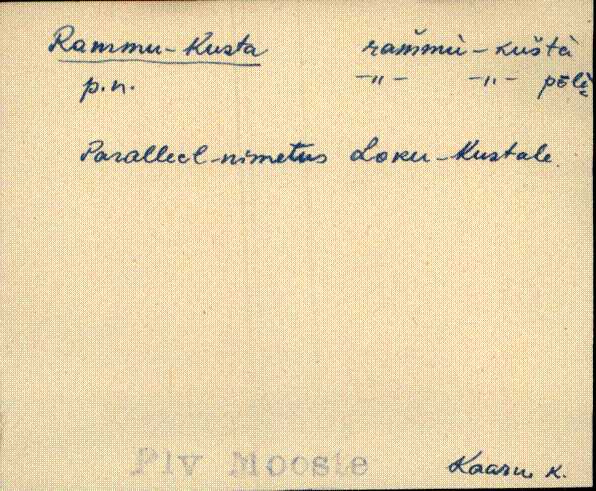 Rammu-Kusta rammù-kustà
p.n. -"- -"- põlè
Paralleel-nimetus Loku-Kustale.
Plv Mooste Kaaru k.